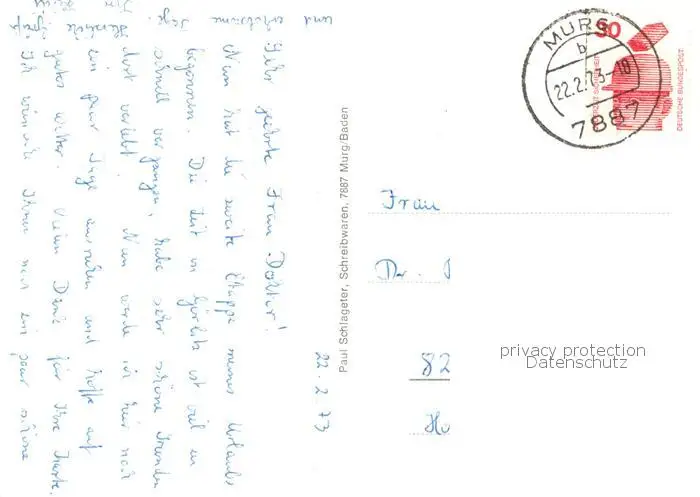 22.2.73
Sehr geehrte Frau Doktor!
Nun hat die zweite Etappe meines Urlaubs
begonnen. Die Zeit in Görlitz ist viel zu
schnell vergangen, habe sehr schöne Stunden
dort verlebt. Nun werde ich hier noch
ein paar Tage ausruhen und hoffe auf
gutes Wetter. Vielen Dank für Ihre Karte.
Ich wünsche Ihnen noch ein paar schöne
und erholsame Tage. Herzliche Grüße
Ihre
Paul Schlageter, Schreibwaren, 7887 Murg/Baden
MURG
b
22.2.73-10
7887
DEUTSCHE BUNDESPOST
Frau
Dr.
82
privacy protection
Datenschutz